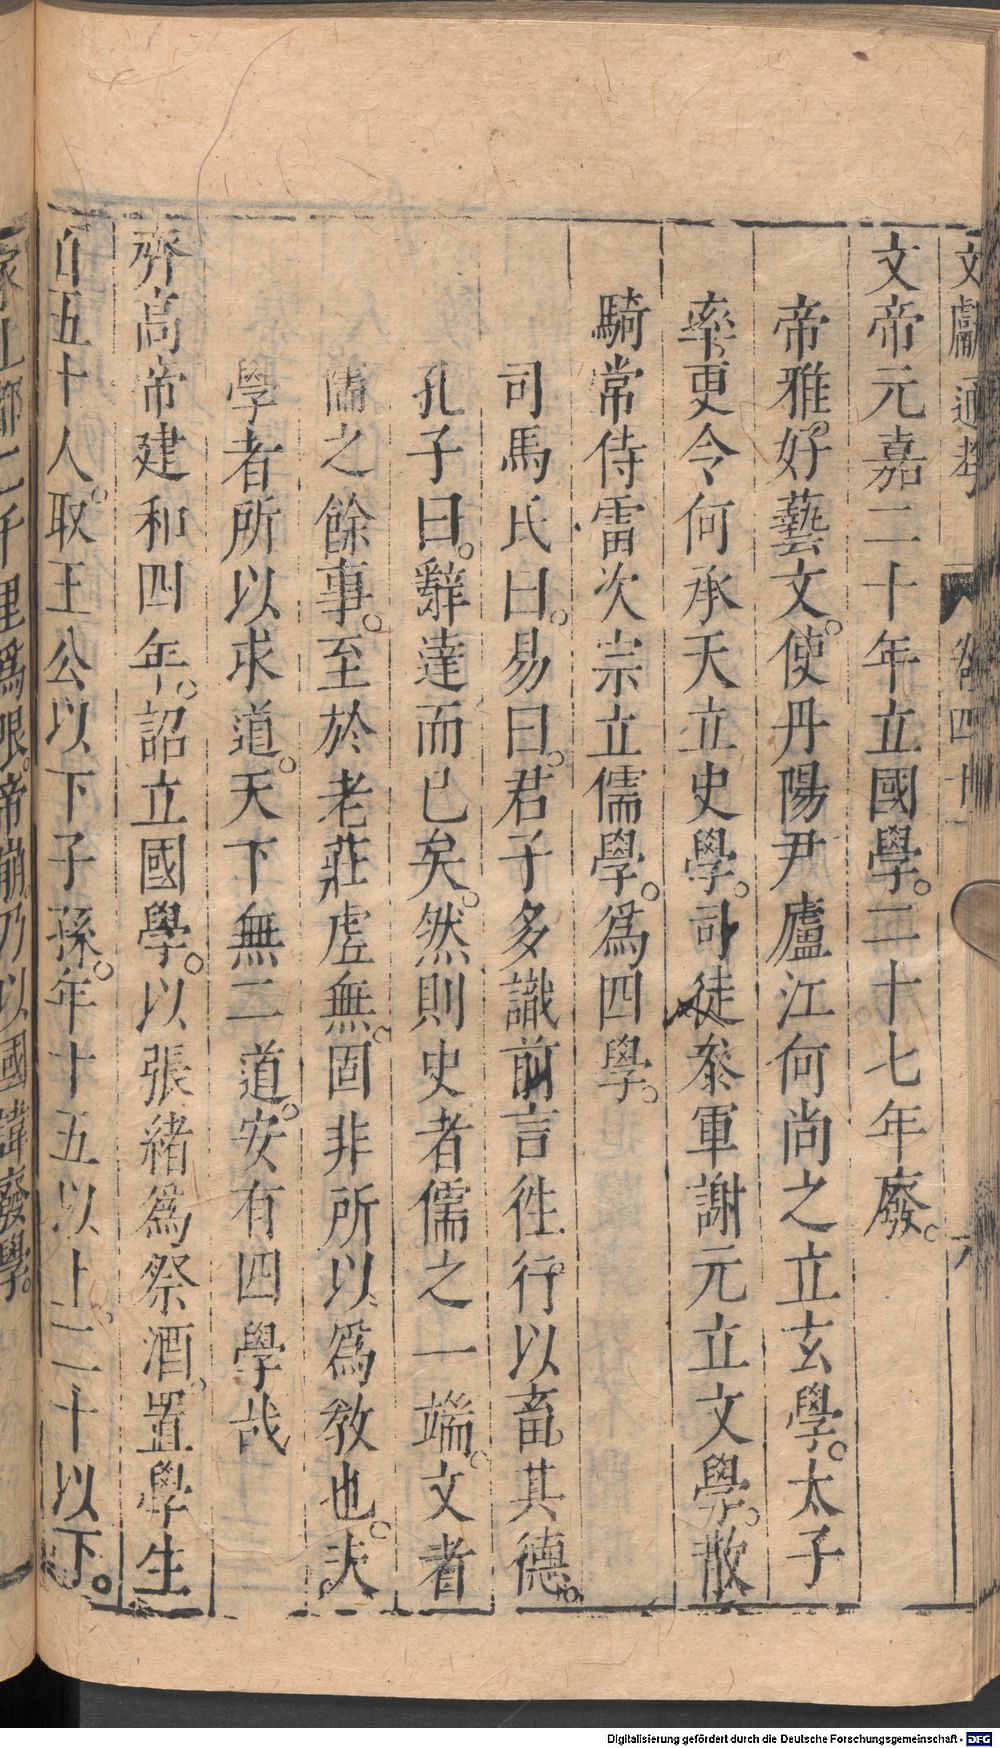 文獻通考　卷四十一　六
文帝元嘉二十年立國學。二十七年廢。
帝雅好藝文。使丹陽尹廬江何尚之立玄學。太子
率更令何承天立史學。司徒參軍謝元立文學。散
騎常侍雷次宗立儒學。爲四學。
司馬氏曰。易曰。君子多識前言徃行以畜其德。
孔子曰。辭達而已矣。然則史者儒之一端。文者
儒之餘事。至於老莊虛無。固非所以爲教也。夫
學者所以求道。天下無二道。安有四學哉
齊高帝建和四年。詔立國學。以張緒爲祭酒。置學生
百五十人。取王公以下子孫。年十五以上。二十以下。
家去都二千里爲限。帝崩。乃以國諱廢學。
Digitalisierung gefördert durch die Deutsche Forschungsgemeinschaft - DFG